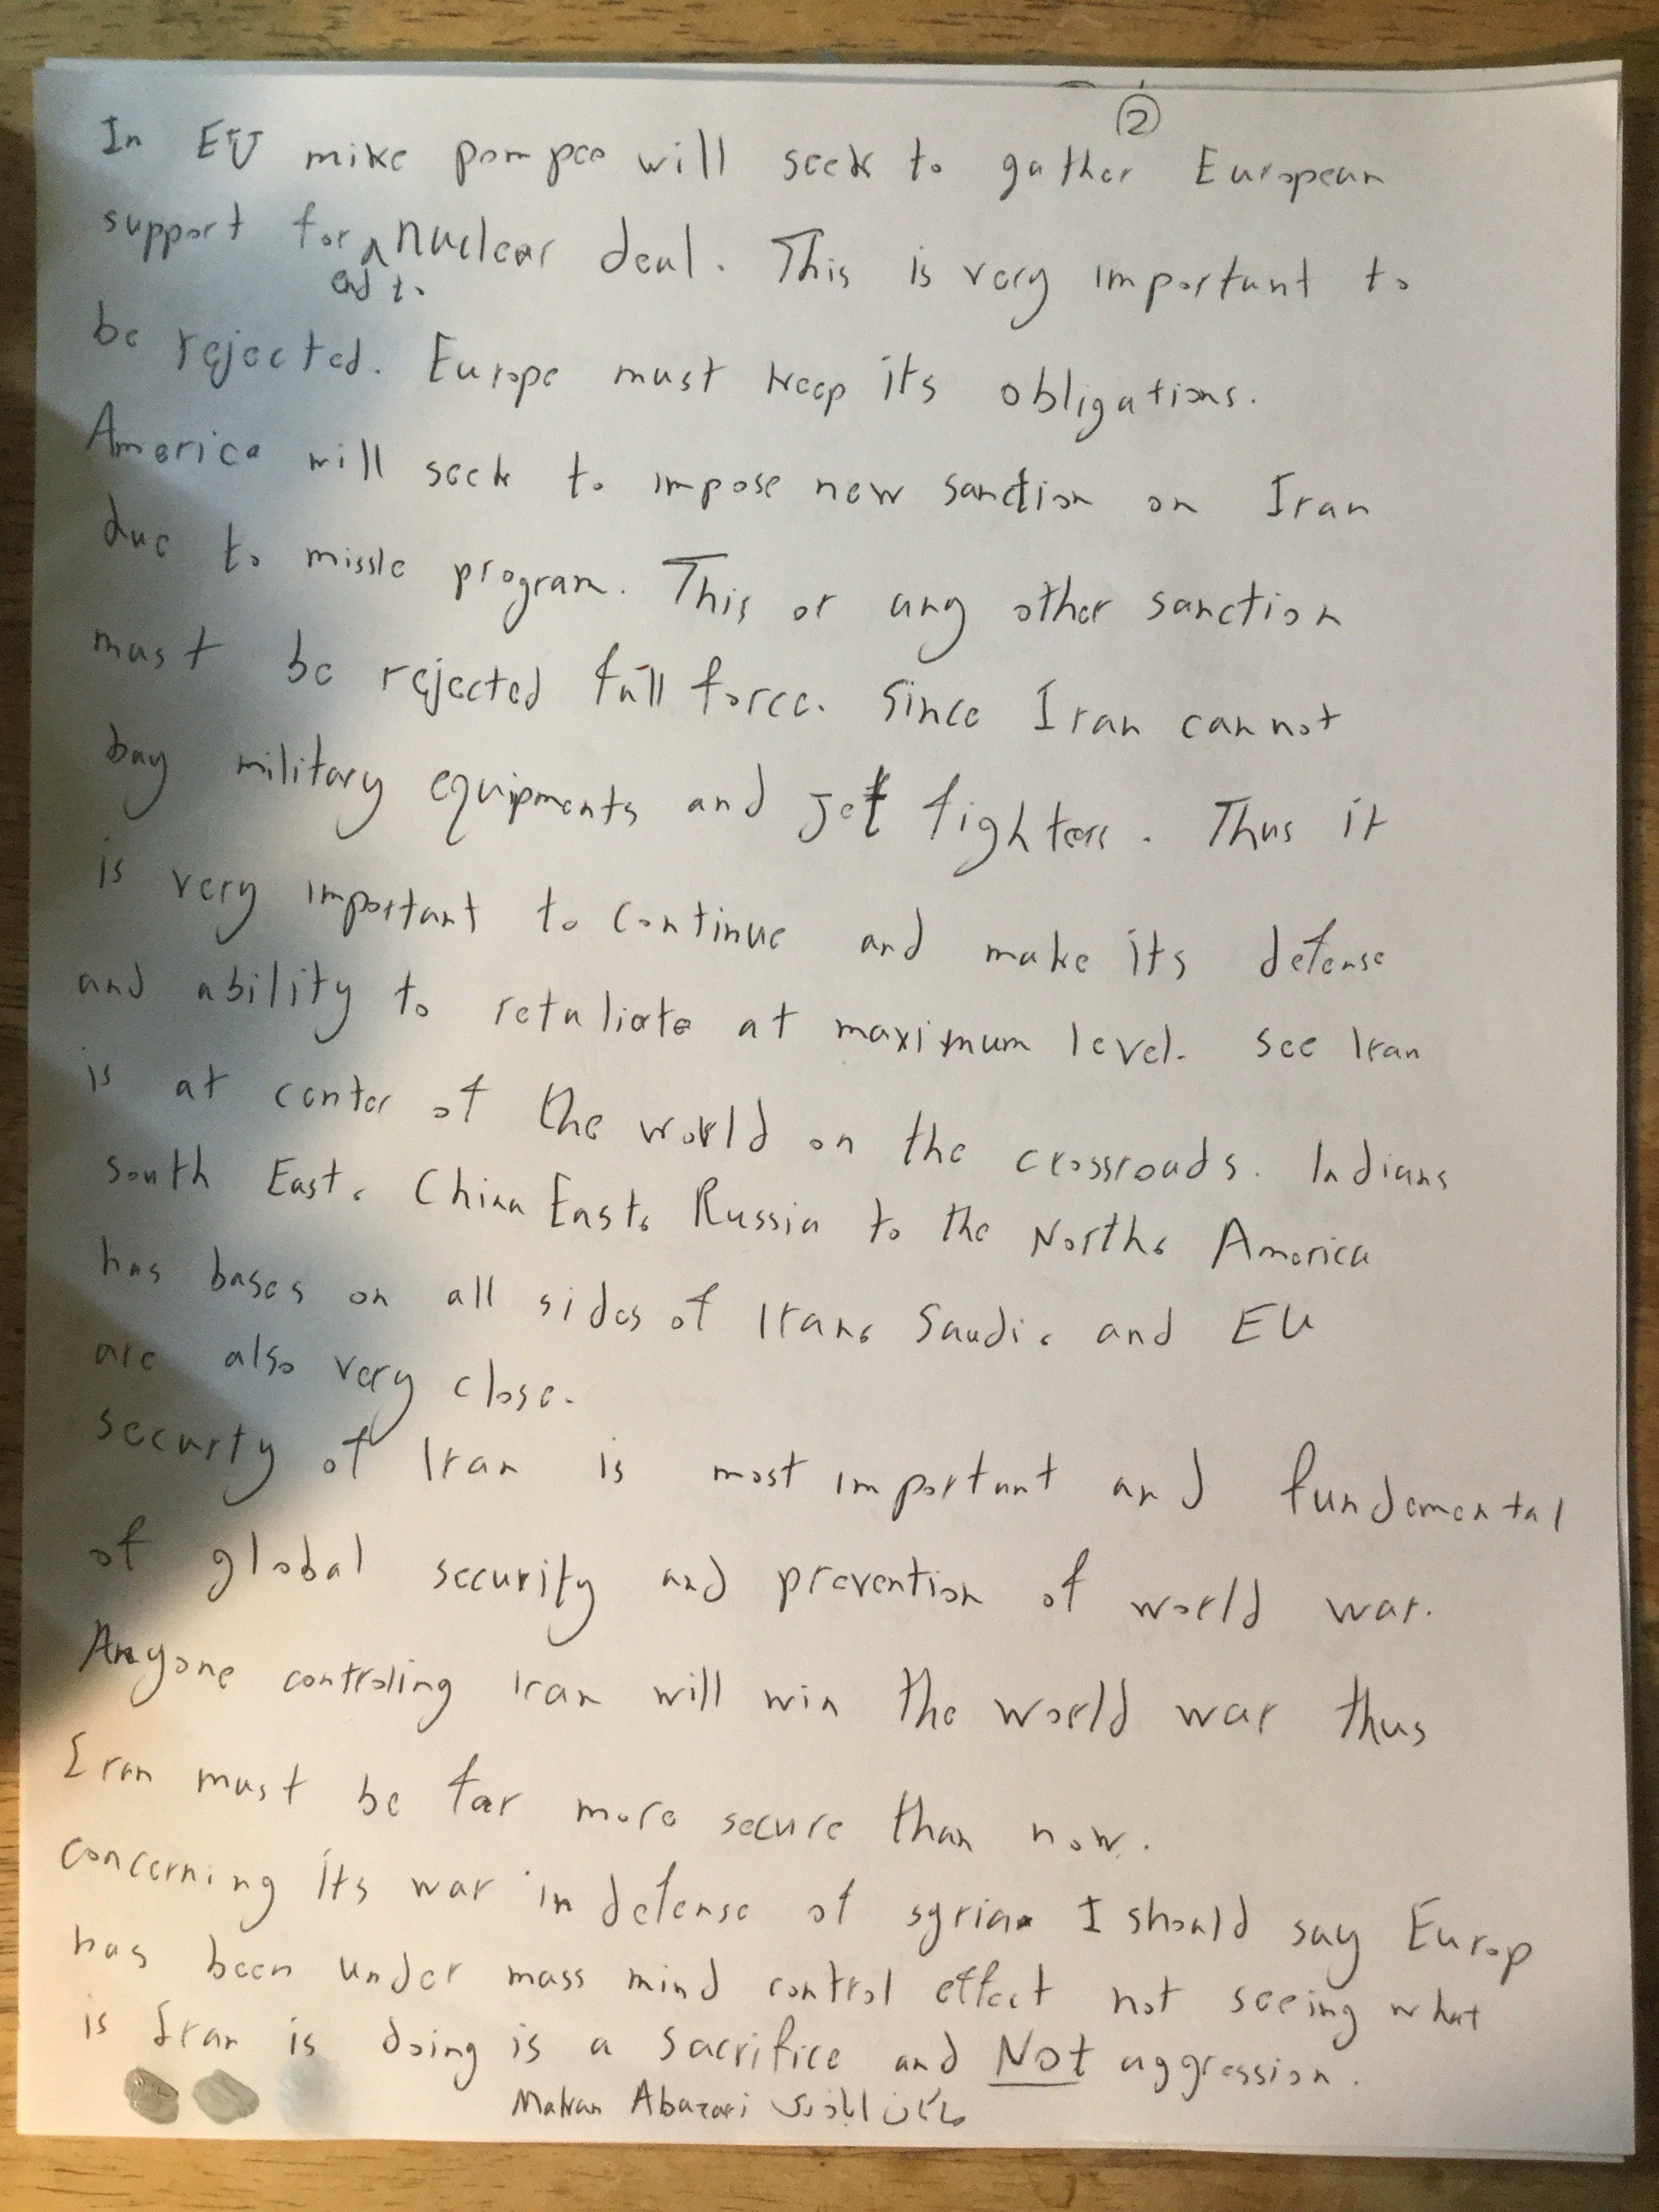 ②
In EU mike pompeo will seek to gather European
support for end to nuclear deal. This is very important to
be rejected. Europe must keep its obligations.
America will seek to impose new sanction on Iran
due to missle program. This or any other sanction
must be rejected full force. Since Iran cannot
buy military equipments and jet fighters. Thus it
is very important to continue and make its defense
and ability to retaliate at maximum level. see Iran
is at center of the world on the crossroads. Indians
south East, China East, Russia to the North, America
has bases on all sides of Iran, Saudi, and EU
are also very close.
securty of Iran is most important and fundemental
of global security and prevention of world war.
Anyone controling Iran will win the world war thus
Iran must be far more secure than now.
concerning its war in defense of syria I should say Europ
has been under mass mind control effect not seeing what
is Iran is doing is a sacrifice and Not aggression.
Makan Abazari ماکان اباذری